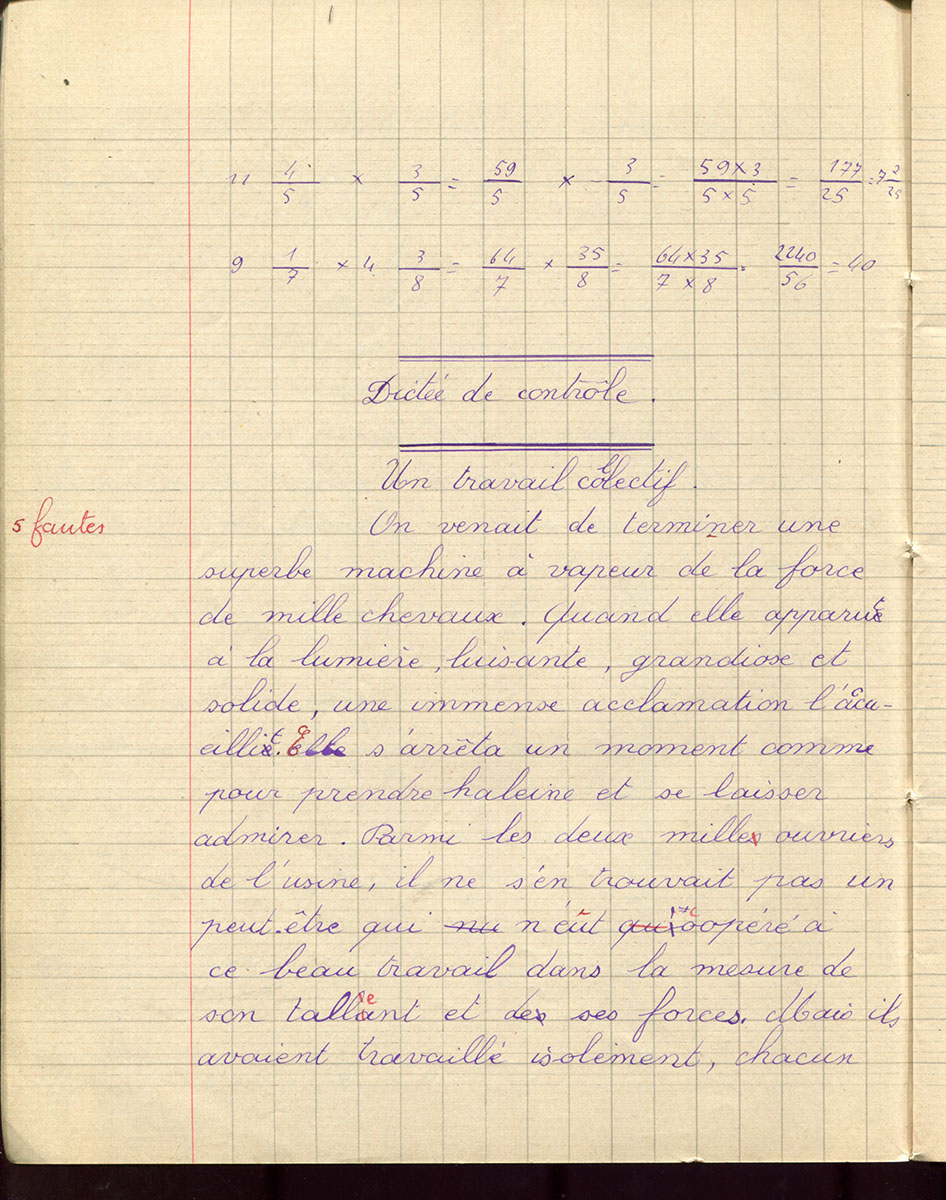 11 4/5 × 3/5 = 59/5 × 3/5 = 59×3/5×5 = 177/25 = 7 2/25
9 1/7 × 4 3/8 = 64/7 × 35/8 = 64×35/7×8 = 2240/56 = 40
Dictée de contrôle.
Un travail colectif.
5 fautes
On venait de terminer une
superbe machine à vapeur de la force
de mille chevaux. Quand elle apparut
à la lumière, luisante, grandiose et
solide, une immense acclamation l'accu-
eillit. Elle s'arrêta un moment comme
pour prendre haleine et se laisser
admirer. Parmi les deux milles ouvriers
de l'usine, il ne s'en trouvait pas un
peut-être qui nu n'eût qui coopéré à
ce beau travail dans la mesure de
son tallent et des ses forces. Mais ils
avaient travaillé isolément, chacun